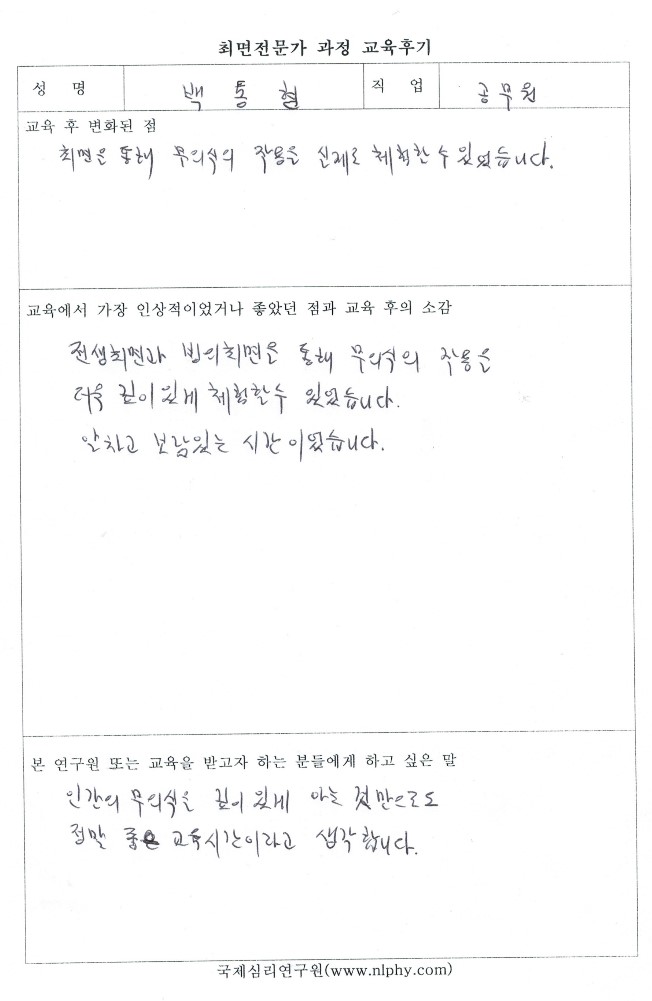 최면전문가 과정 교육후기
성 명 백 동 현 직 업 공무원
교육 후 변화된 점
최면을 통해 무의식의 작용을 실제로 체험할 수 있었습니다.
교육에서 가장 인상적이었거나 좋았던 점과 교육 후의 소감
전생최면과 빙의최면을 통해 무의식의 작용을
더욱 깊이 있게 체험할 수 있었습니다.
알차고 보람있는 시간이었습니다.
본 연구원 또는 교육을 받고자 하는 분들에게 하고 싶은 말
인간의 무의식을 깊이 있게 아는 것만으로도
정말 좋은 교육시간이라고 생각합니다.
국제심리연구원(www.nlphy.com)